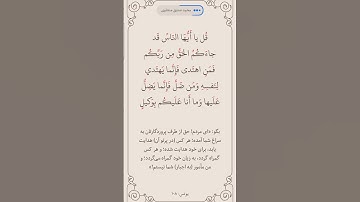 قُل يا أَيُّهَا النّاسُ قَد
جاءَكُمُ الحَقُّ مِن رَبِّكُم
فَمَنِ اهتَدى فَإِنَّما يَهتَدي
لِنَفسِهِ وَمَن ضَلَّ فَإِنَّما يَضِلُّ
عَلَيها وَما أَنا عَلَيكُم بِوَكيلٍ
بگو: «ای مردم! حق از طرف پروردگارتان به
سراغ شما آمده؛ هر کس (در پرتو آن) هدایت
یابد، برای خود هدایت شده؛ و هر کس
گمراه گردد، به زیان خود گمراه می‌گردد؛ و
من مأمور (به اجبار) شما نیستم!»
یونس، ۱۰۸